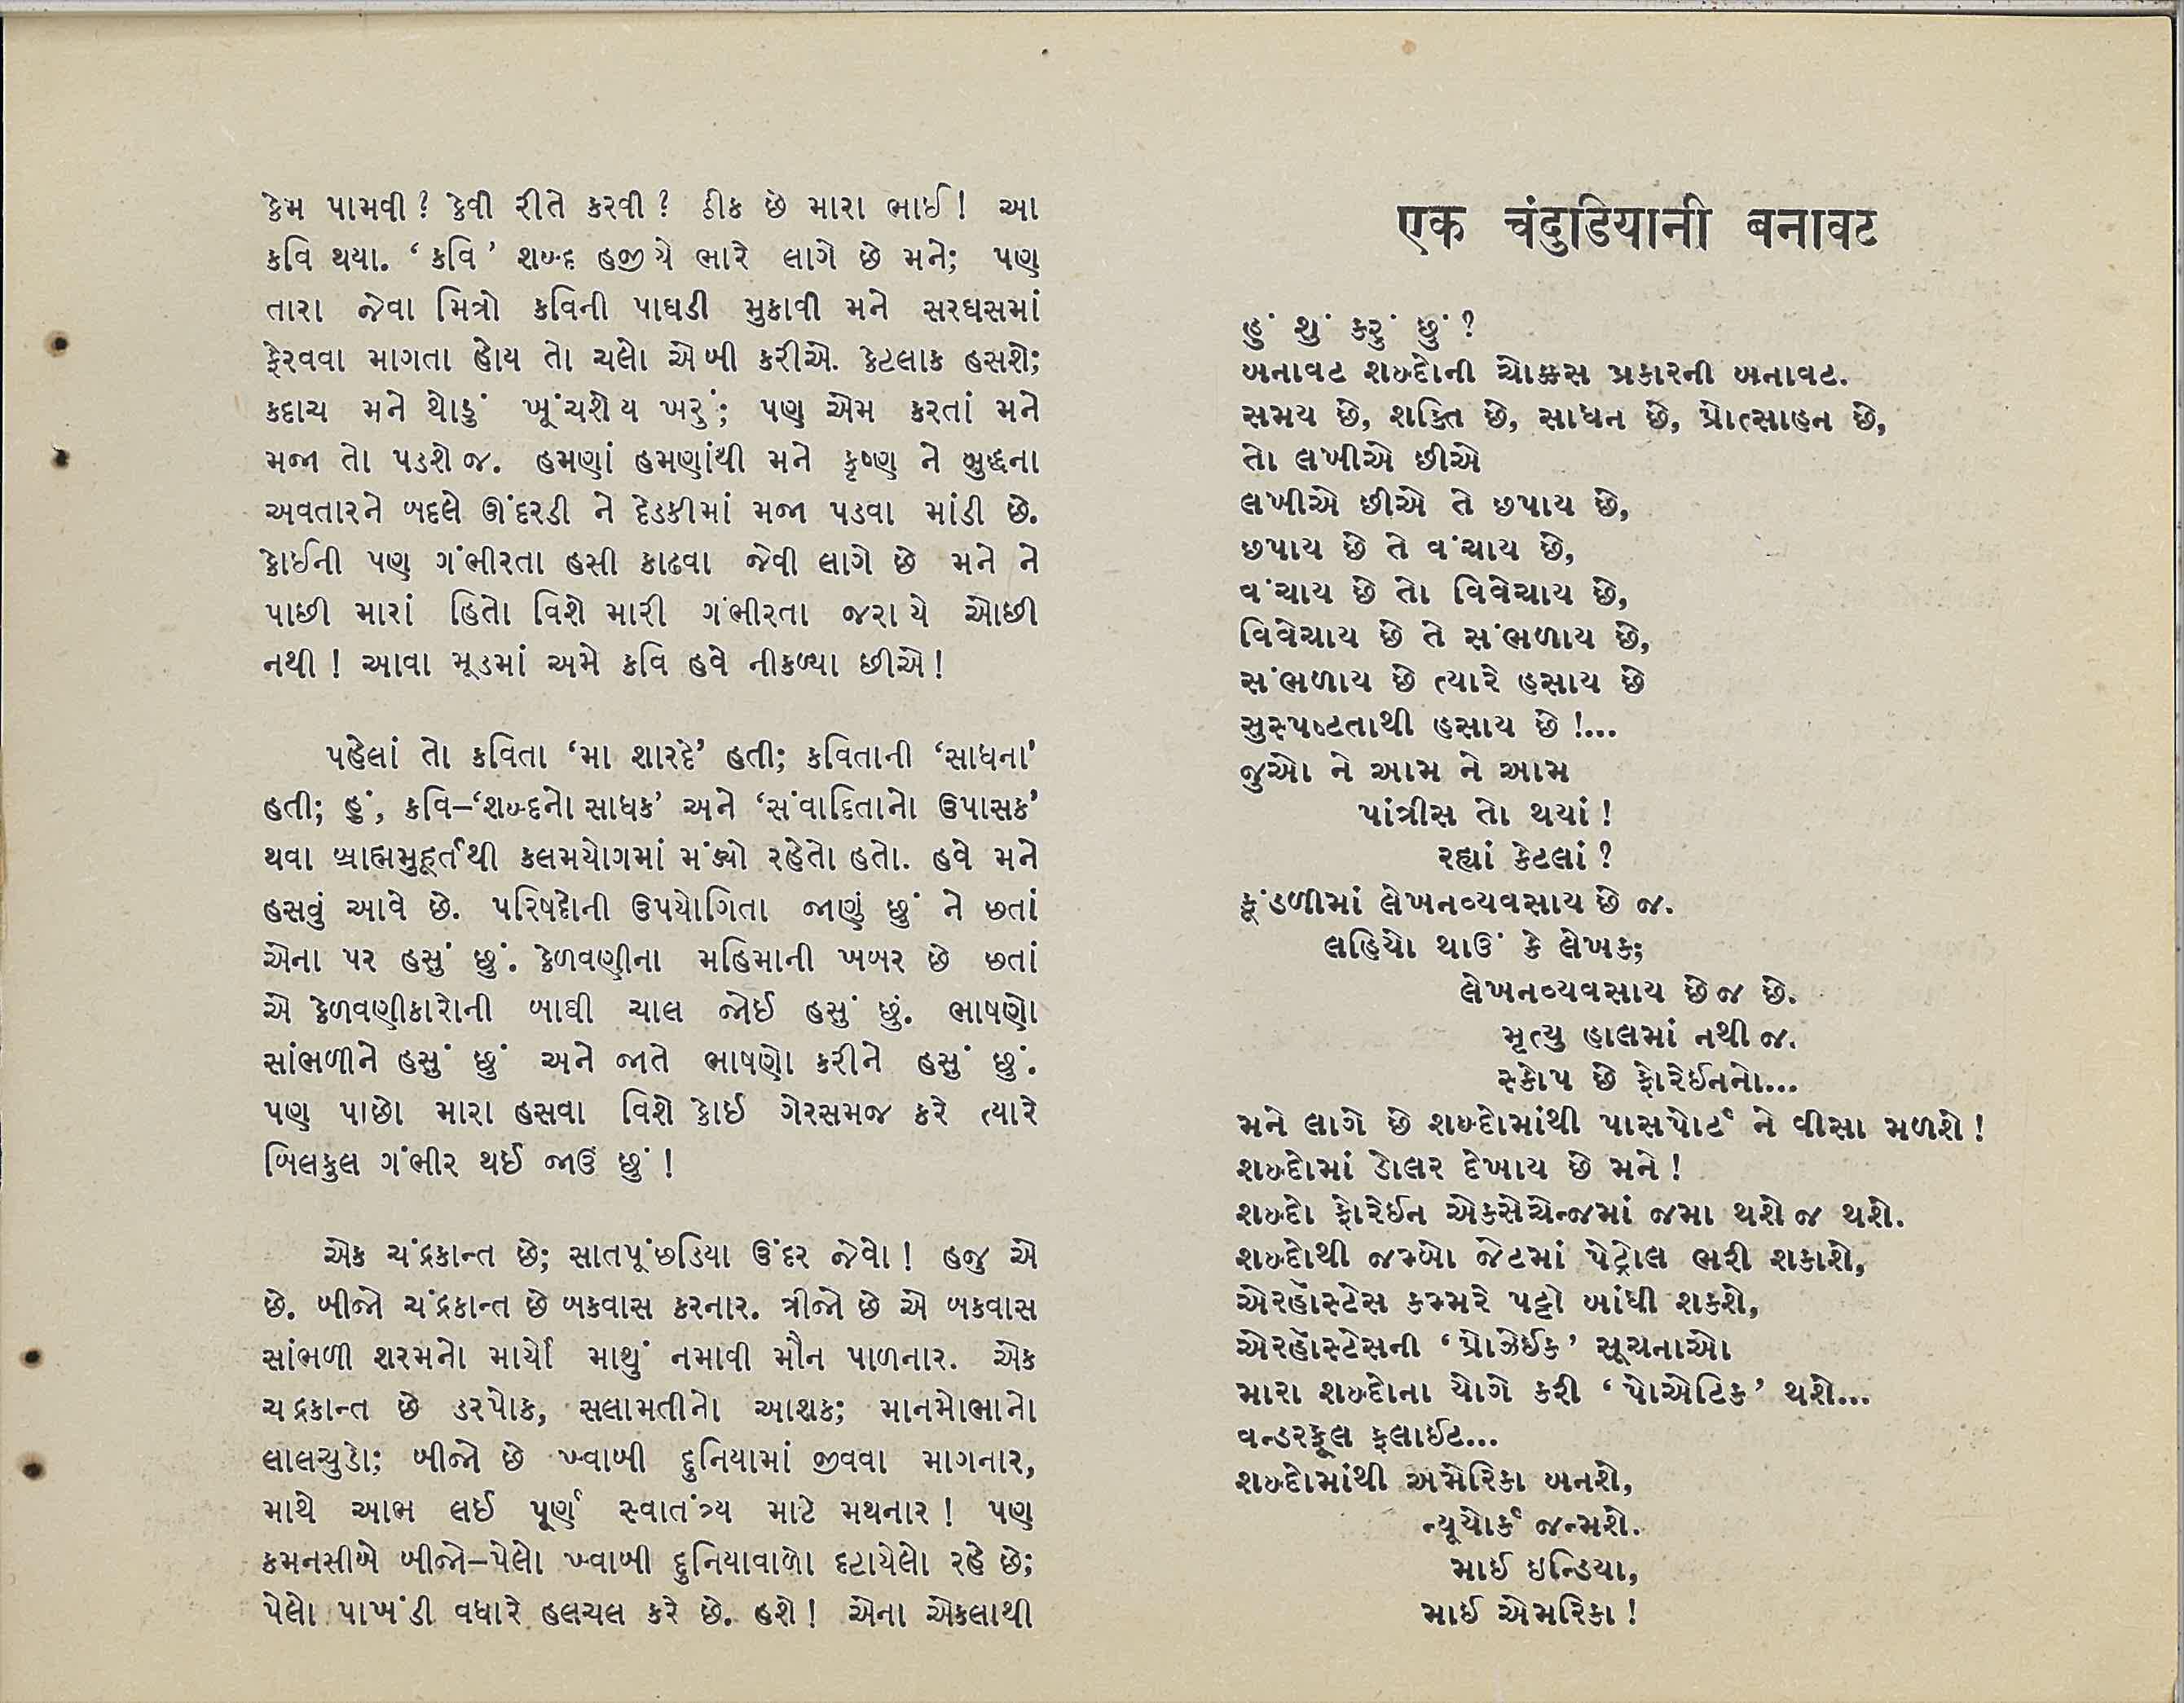 કેમ પામવી? કેવી રીતે કરવી? ઠીક છે મારા ભાઈ! આ
કવિ થયા. ‘કવિ’ શબ્દ હજીયે ભારે લાગે છે મને; પણ
તારા જેવા મિત્રો કવિની પાઘડી મુકાવી મને સરઘસમાં
ફેરવવા માગતા હોય તો ચલો એ બી કરીએ. કેટલાક હસશે;
કદાચ મને થોડું ખૂંચશેય ખરું; પણ એમ કરતાં મને
મજા તો પડશે જ. હમણાં હમણાંથી મને કૃષ્ણ ને બુદ્ધના
અવતારને બદલે ઊંદરડી ને દેડકીમાં મજા પડવા માંડી છે.
કોઈની પણ ગંભીરતા હસી કાઢવા જેવી લાગે છે મને ને
પાછી મારાં હિતો વિશે મારી ગંભીરતા જરાયે ઓછી
નથી! આવા મૂડમાં અમે કવિ હવે નીકળ્યા છીએ!
પહેલાં તો કવિતા ‘મા શારદે’ હતી; કવિતાની ‘સાધના’
હતી; હું, કવિ–‘શબ્દનો સાધક’ અને ‘સંવાદિતાનો ઉપાસક’
થવા બ્રાહ્મમુહૂર્તથી કલમયોગમાં મંડ્યો રહેતો હતો. હવે મને
હસવું આવે છે. પરિષદોની ઉપયોગિતા જાણું છું ને છતાં
એના પર હસું છું. કેળવણીના મહિમાની ખબર છે છતાં
એ કેળવણીકારોની બાઘી ચાલ જોઈ હસું છું. ભાષણો
સાંભળીને હસું છું અને જાતે ભાષણો કરીને હસું છું.
પણ પાછો મારા હસવા વિશે કોઈ ગેરસમજ કરે ત્યારે
બિલકુલ ગંભીર થઈ જાઉં છું!
એક ચંદ્રકાન્ત છે; સાતપૂંછડિયા ઉંદર જેવો! હજુ એ
છે. બીજો ચંદ્રકાન્ત છે બકવાસ કરનાર. ત્રીજો છે એ બકવાસ
સાંભળી શરમનો માર્યો માથું નમાવી મૌન પાળનાર. એક
ચદ્રકાન્ત છે ડરપોક, સલામતીનો આશક; માનમોભાનો
લાલચુડો; બીજો છે ખ્વાબી દુનિયામાં જીવવા માગનાર,
માથે આભ લઈ પૂર્ણ સ્વાતંત્ર્ય માટે મથનાર! પણ
કમનસીબે બીજો–પેલો ખ્વાબી દુનિયાવાળો દટાયેલો રહે છે;
પેલો પાખંડી વધારે હલચલ કરે છે. હશે! એના એકલાથી
एक चंदुडियानी बनावट
હું શું કરું છું?
બનાવટ શબ્દોની ચોક્કસ પ્રકારની બનાવટ.
સમય છે, શક્તિ છે, સાધન છે, પ્રોત્સાહન છે,
તો લખીએ છીએ
લખીએ છીએ તે છપાય છે,
છપાય છે તે વંચાય છે,
વંચાય છે તો વિવેચાય છે,
વિવેચાય છે તે સંભળાય છે,
સંભળાય છે ત્યારે હસાય છે
સુસ્પષ્ટતાથી હસાય છે!...
જુઓ ને આમ ને આમ
પાંત્રીસ તો થયાં!
રહ્યાં કેટલાં?
કૂંડળીમાં લેખનવ્યવસાય છે જ.
લહિયો થાઉં કે લેખક;
લેખનવ્યવસાય છે જ છે.
મૃત્યુ હાલમાં નથી જ.
સ્કોપ છે ફોરેઈનનો...
મને લાગે છે શબ્દોમાંથી પાસપોર્ટ ને વીસા મળશે!
શબ્દોમાં ડોલર દેખાય છે મને!
શબ્દો ફોરેઈન એકસેચેન્જમાં જમા થશે જ થશે.
શબ્દોથી જમ્બો જેટમાં પેટ્રોલ ભરી શકાશે,
એરહૉસ્ટેસ કમ્મરે પટ્ટો બાંધી શકશે,
એરહૉસ્ટેસની ‘પ્રોઝેઈક’ સૂચનાઓ
મારા શબ્દોના યોગે કરી ‘પોએટિક’ થશે...
વન્ડરફૂલ ફ્લાઈટ...
શબ્દોમાંથી અમેરિકા બનશે,
ન્યૂયોર્ક જન્મશે.
માઈ ઇન્ડિયા,
માઈ એમરિકા!